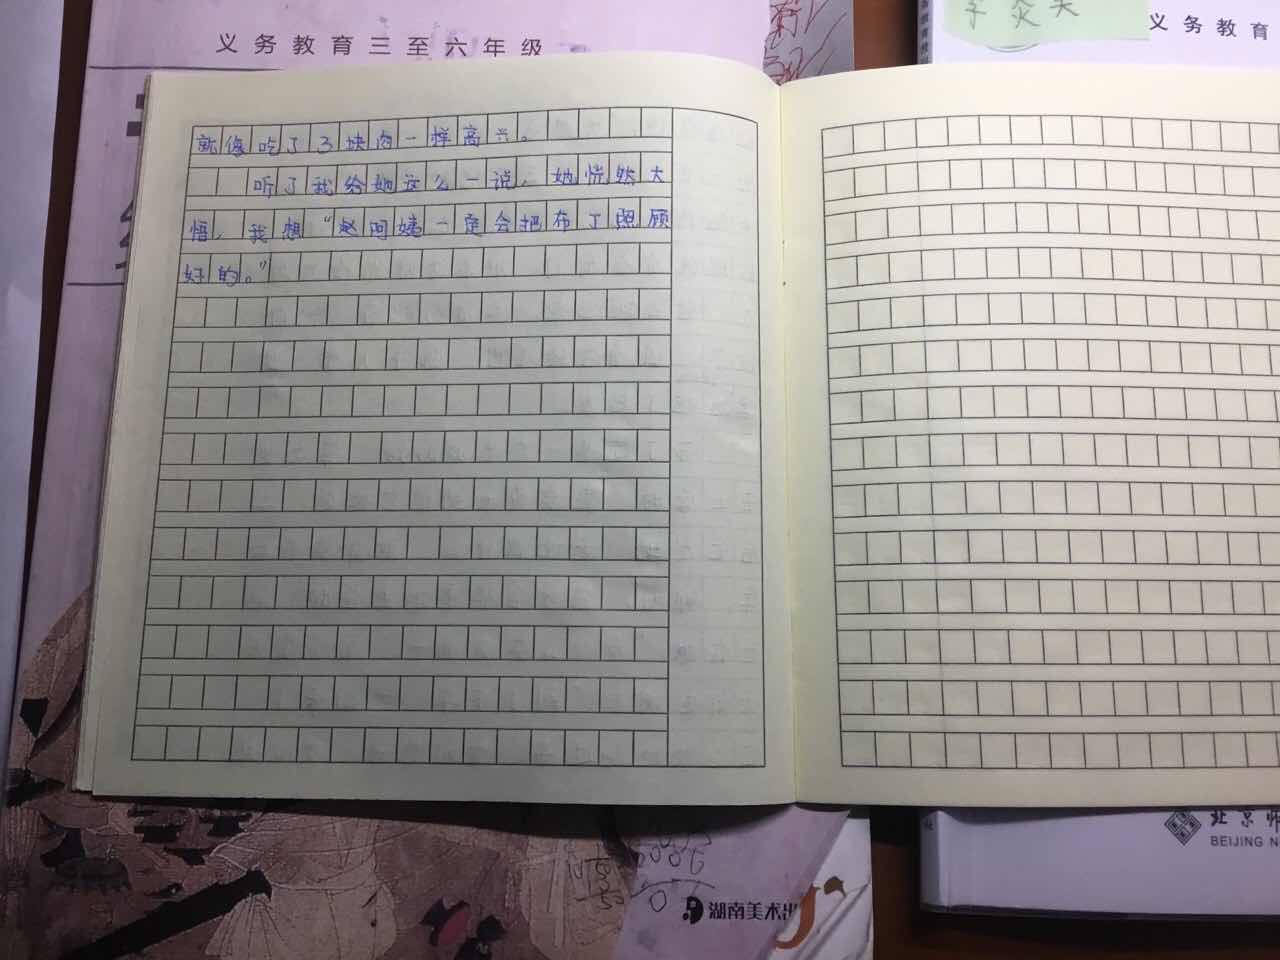 义务教育三至六年级
义务教育
就像吃了3块肉一样高兴。
听了我给她这么一说，她恍然大
悟，我想“赵阿姨一定会把布丁照顾
好的。”
北京师
BEIJING N
湖南美术出